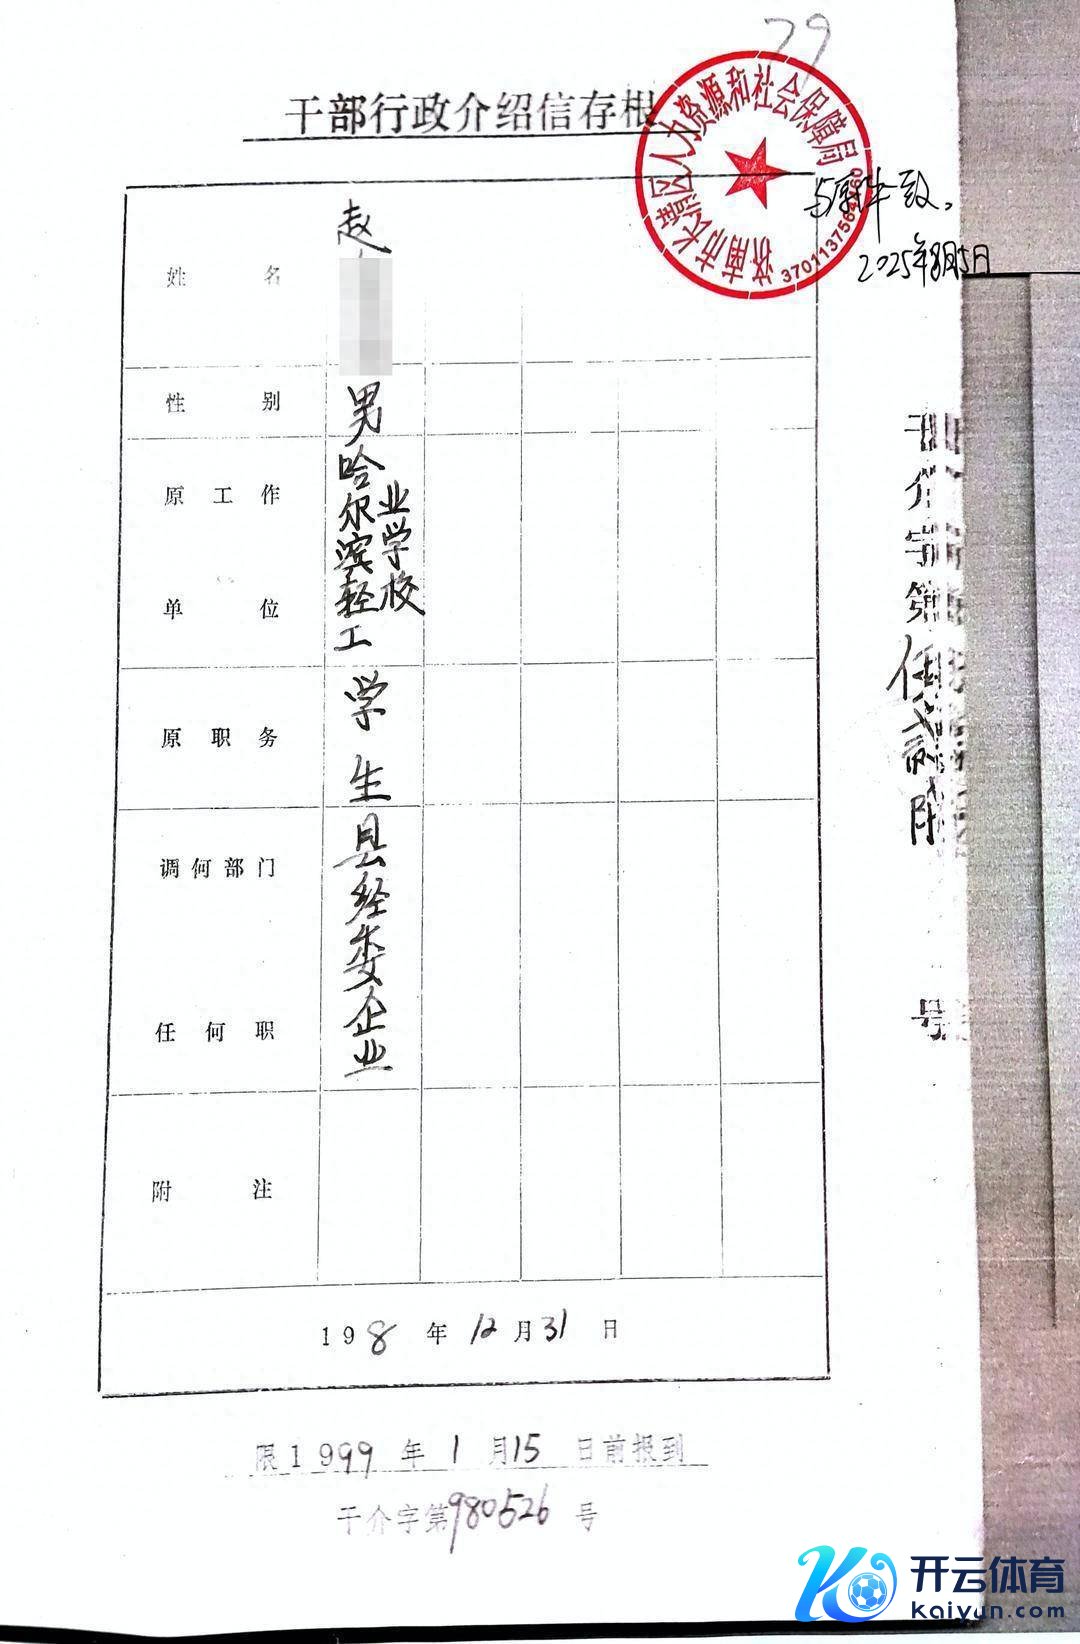 79
干部行政介绍信存根
济南市长清区人力资源和社会保障局
与原件一致。
2025年8月5日
姓名
赵
性别
男
原工作单位
哈尔滨轻工业学校
原职务
学生
调何部门任何职
县经委企业
附注
198年12月31日
限1999年1月15日前报到
干介字第980526号
干介字第伍
号
开云体育
kaiyun.com